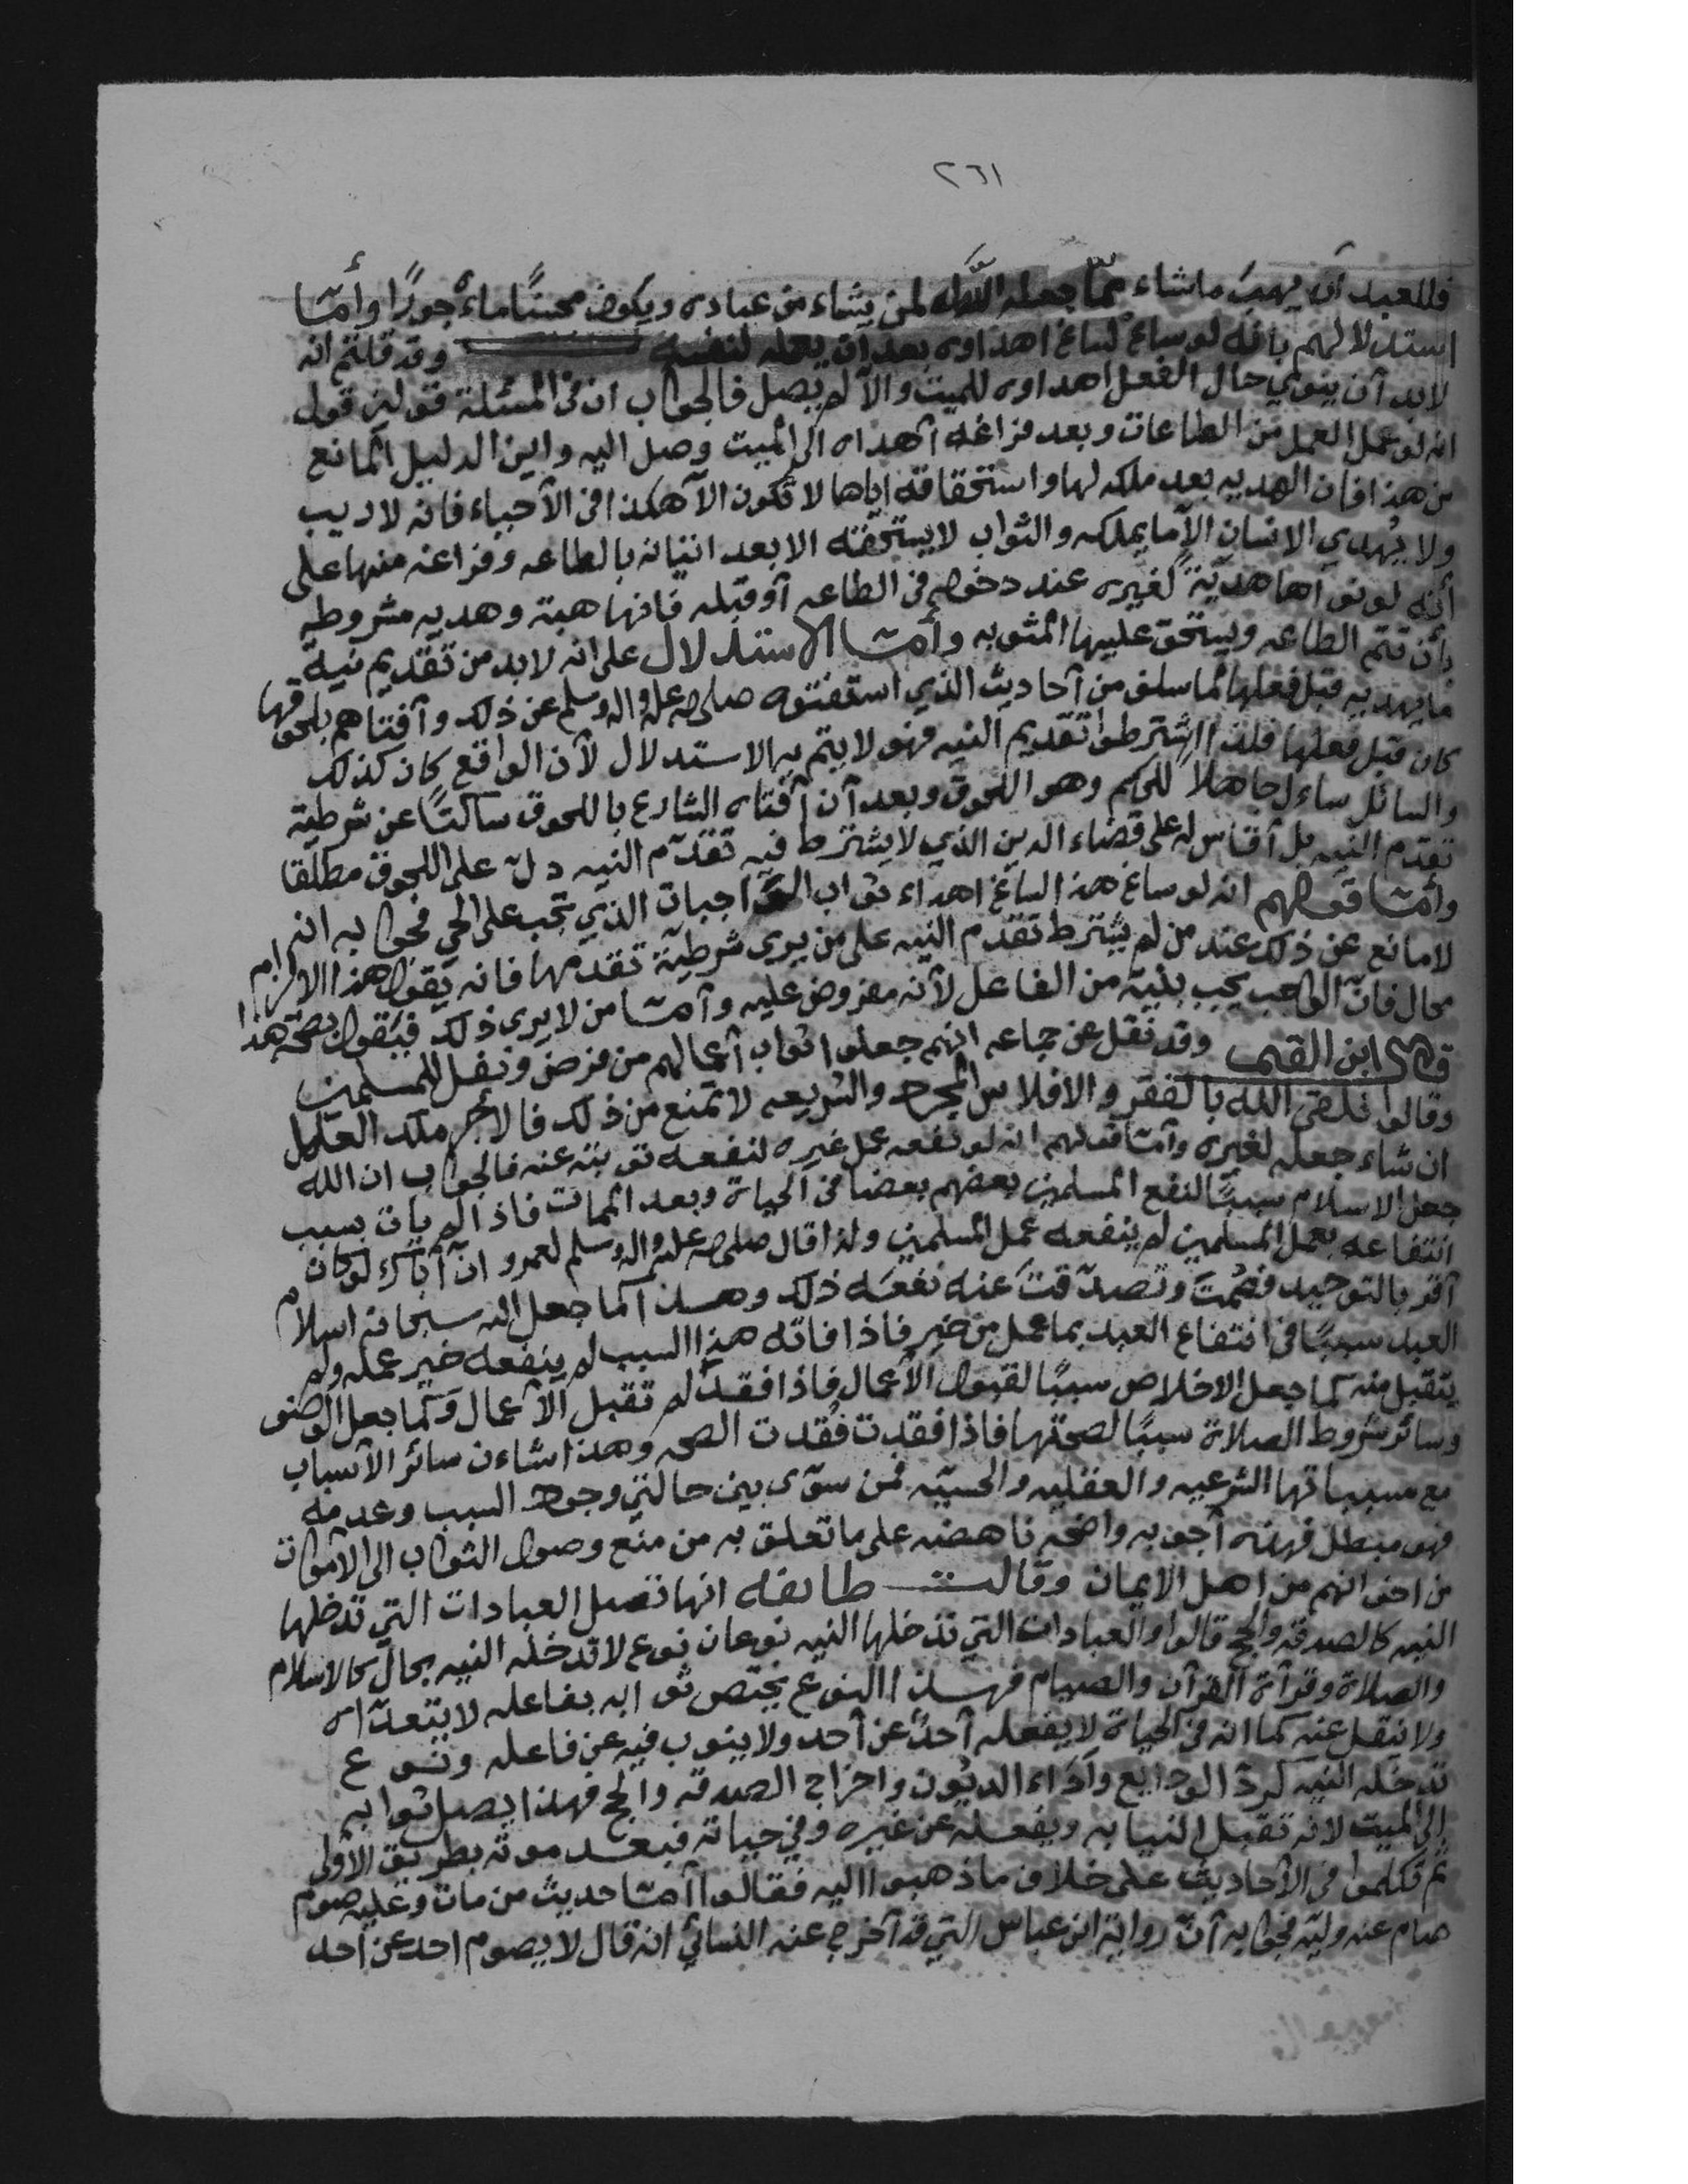 ٢٦١
فللعبد أن يهبَ ما شاء ممّا جعله اللّه لمن يشاء من عباده ويكون محسنًا ماءجورًا وأمّا
استدلالهم بانه لو ساغ لساغ اهداوه بعد أن يعمله لنفسه وقد قلتم انه
لابد أن ينوي حال الفعل اهداوه للميت والآ لم يصل فالجواب ان في المسئلة قولين قول
انه لو عمل العمل من الطاعات وبعد فراغه أهداه الى الميت وصل اليه واين الدليل المانع
من هذا فان الهديه بعد ملكه لها واستحقاقه اياها لا تكون الآ هكذا في الأحياء فانه لا ريب
ولا يُهدي الانسان الآ ما يملكه والثواب لا يستحقه الا بعد اتيانه بالطاعه وفراغه منها على
أنه لو نواها هديّةً لغيره عند دخوله في الطاعه أو قبله فانها هبة وهديه مشروطه
بأن تتم الطاعه ويستحق عليها المثوبه وأمّا الاستدلال على انه لابد من تقديم نية
ما يهديه قبل فعلها لما سلف من آحاديث الذي استفتوه صلى الله عليه واله وسلم عن ذلك وآفتاهم بلحوقها
كان قبل فعلها فلذا اشترطوا تقديم النيه فهو لا يتم به الاستدلال لآن الواقع كان كذلك
والسائل ساءل جاهلاً للحكم وهو اللحوق وبعد آن آفتاه الشارع باللحوق ساكتًا عن شرطية
تقدم النيه بل آقاس له على قضاء الدين الذي لا يشترط فيه تقدّم النيه دلّ على اللحوق مطلقا
وأمّا قولهم انه لو ساغ هذا لساغ اهداء ثواب الواجبات الذي تجب على الحي فجوابه انه
لا مانع عن ذلك عند من لم يشترط تقدم النيه على من يرى شرطيّة تقدمها فانه يقول هذا الالزام
محال فانّ الواجب يجب بنيّة من الفاعل لأنه مفروض عليه وآمّا من لا يرى ذلك فيَقول بصحة هذا
قال ابن القيم وقد نقل عن جماعه انهم جعلوا ثواب آعمالهم من فرض ونفل للمسلمين
وقالوا نلقى الله بالفقر والافلاس المجرد والشريعه لا تمنع من ذلك فالأجر ملك العامل
ان شاء جعله لغيره وآمّا قولهم انه لو نفعه عمل غيره لنفعه توبته عنه فالجواب ان الله
جعل الاسلام سببًا لنفع المسلمين بعضهم بعضا في الحياة وبعد الممات فاذا لم يات بسبب
انتفاعه بعمل المسلمين لم ينفعه عمل المسلمين ولذا قال صلى الله عليه واله وسلم لعمرو انّ آباك لو كان
آقر بالتوحيد فصُمتَ وتصدّقتَ عنه نفعَه ذلك وهذا كما جعل الله سبحانه اسلام
العبد سببًا في انتفاع العبد بما عمل من خير فاذا فاته هذا السبب لم ينفعه خير عمله ولم
يتقبل منه كما جعل الاخلاص سببًا لقبول الأعمال فاذا فقد لم تقبل الآعمال وكما جعل الوضو
وسائر شروط الصلاة سببًا لصحتها فاذا فقدت فُقدت الصحه وهذا شاءن سائر الآسباب
مع مسبباتها الشرعيه والعقليه والحسيّه فمن سوّى بين حالتي وجود السبب وعدمه
فهو مبطل فهذه آجوبه واضحه ناهضه على ما تعلق به من منع وصول الثواب الى الآموات
من اخوانهم من اهل الايمان وقالت طائفه انها تصل العبادات التي تدخلها
النيه كالصدقه والحج قالوا والعبادات التي تدخلها النيه نوعان نوع لا تدخله النيه بحال كالاسلام
والصلاة وقرآة القرآن والصيام فهذا النوع يختص ثوابه بفاعله لا يتعدّاه
ولا ينقل عنه كما انه في الحياة لا يفعله آحدٌ عن آحد ولا ينوب فيه عن فاعله ونوع
تدخله النيه كردّ الودايع وآداء الديُون واخراج الصدقه والحج فهذا يصل ثوابه
الى الميت لانه تقبل النيابه ويفعله عن غيره وفي حياته فبعد موته بطريق الاولى
ثم تكلموا في الأحاديث على خلاف ما ذهبوا اليه فقالوا آمّا حديث من مات وعليه صوم
صام عنه وليّه فجوابه آنّ رواية ابن عباس التي قد آخرج عنه النسائي انه قال لا يصوم احد عن آحد